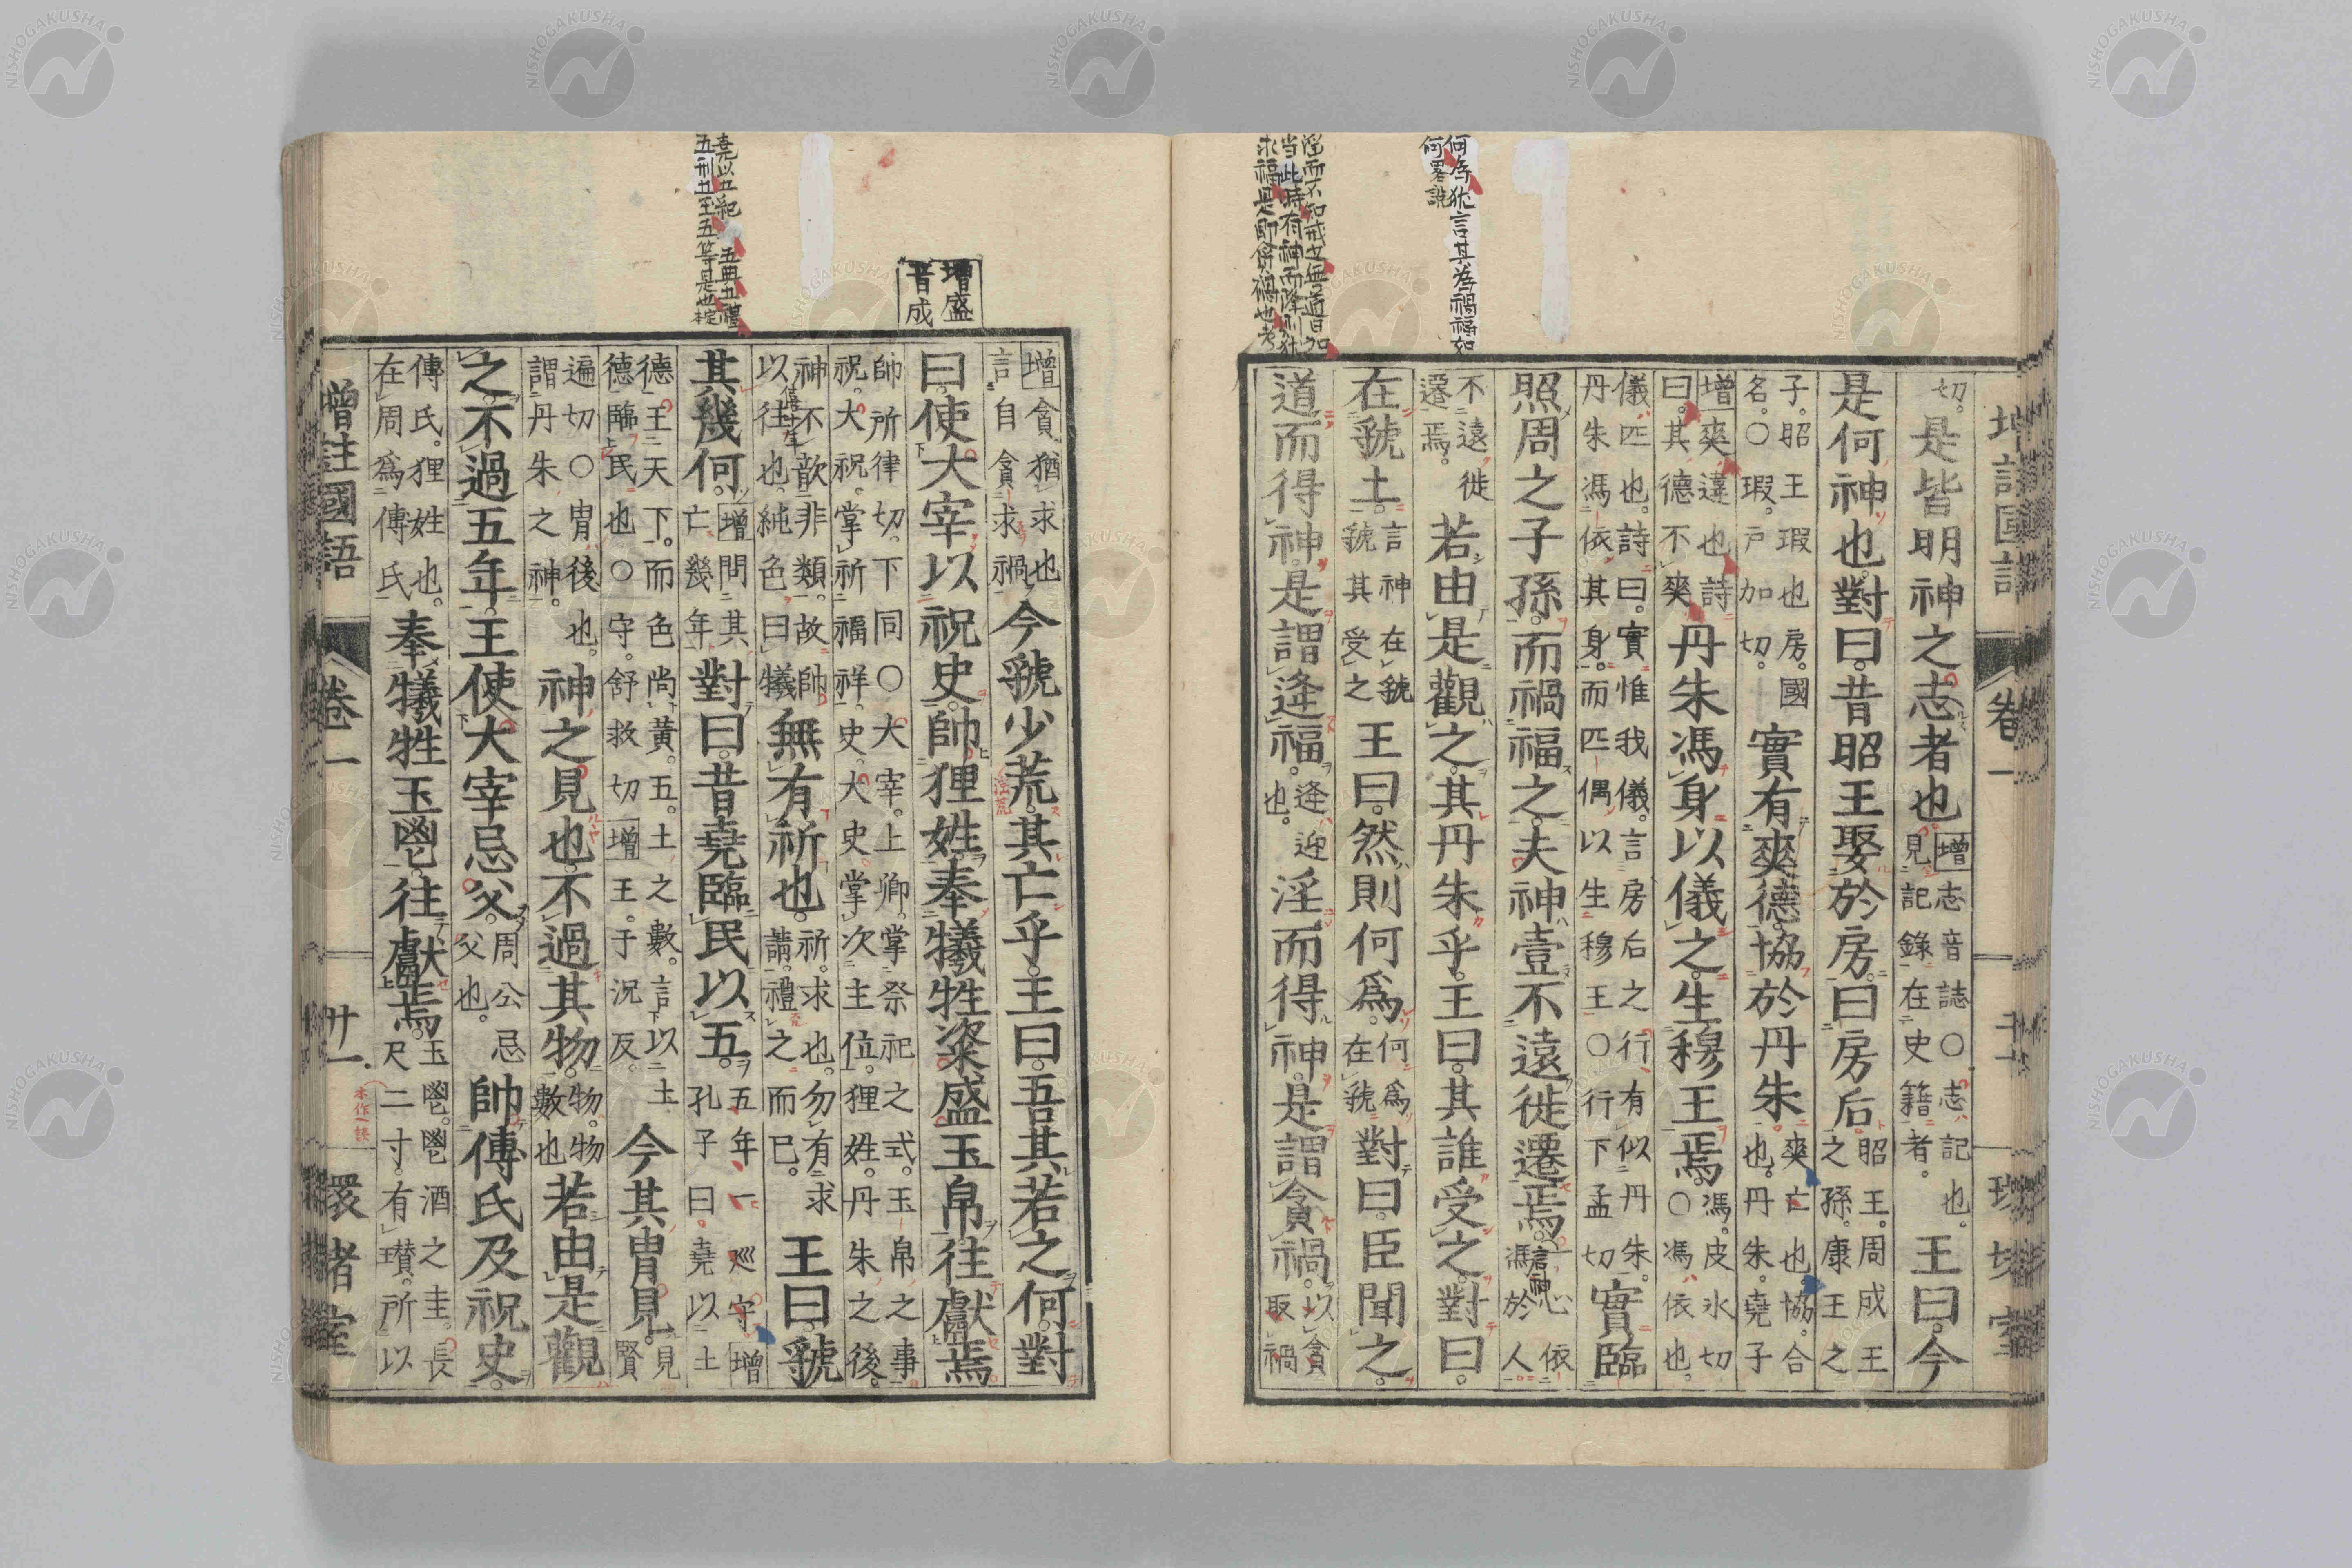 何為猶言其為禍福如
何畧説
淫而不知戒也無道曰加
当此時有神而降則
求福是即貪禍也
切。是皆明神之志者也增志音誌○志記也。見記錄在史籍者。王曰。今
是何神也。對曰。昔昭王娶於房。曰房后。昭王。周成王之孫。康王之
子。昭王瑕也房。國名。○瑕。戸加切。實有爽德。協於丹朱。爽亡也協。合也。丹朱。堯子
增爽違也詩曰。其德不爽丹朱馮身以儀之。生穆王焉。馮。皮氷切○馮依也。
儀。匹也。詩曰。實惟我儀。言房后之行有似丹朱。丹朱馮依其身。而匹偶以生穆王○行下孟切實臨
照周之子孫。而禍福之。夫神壹不遠徙遷焉。言神一心依馮於人
不遠徙遷焉。若由是觀之。其丹朱乎。王曰。其誰受之。對曰。
在虢土。言神在虢虢其受之王曰。然則何爲。何爲在虢對曰。臣聞之。
道而得神。是謂逢福。逢迎也。淫而得神。是謂貪禍。以貪取禍
增註國語
卷一
增盛
音成
堯以五紀 五典五禮
五刑五玉五等是也
增貪猶求也言自貪求禍今虢少荒。其亡乎。王曰。吾其若之何。對
曰。使大宰以祝史。帥狸姓。奉犧牲粢盛玉帛。往獻焉
帥所律切。下同○大宰。上卿。掌祭祀之式。玉帛之事祝。大祝。掌祈福祥。史。大史掌次主位。狸姓。丹朱之後。
神不歆非類。故帥以往也。純色曰犧無有祈也。祈。求也。勿有求請。禮之而已。王曰。虢
其幾何。增問其亡幾年對曰。昔堯臨民以五。五年一巡守增孔子曰。堯以土
德王天下。而色尚黃。五。土之數。言以土德臨民也○守。舒救切增王。于況反。今其胄見。見賢
遍切○胄後也。謂丹朱之神。神之見也。不過其物。物。物數也若由是觀
之。不過五年。王使大宰忌父。周公忌父也。帥傅氏及祝史。
傅氏。狸姓也。在周爲傅氏奉犧牲玉鬯。往獻焉。玉鬯。鬯酒之圭。長尺二寸。有瓚。所以
增註國語
卷一
廿一
環堵室
NISHOGAKUSHA